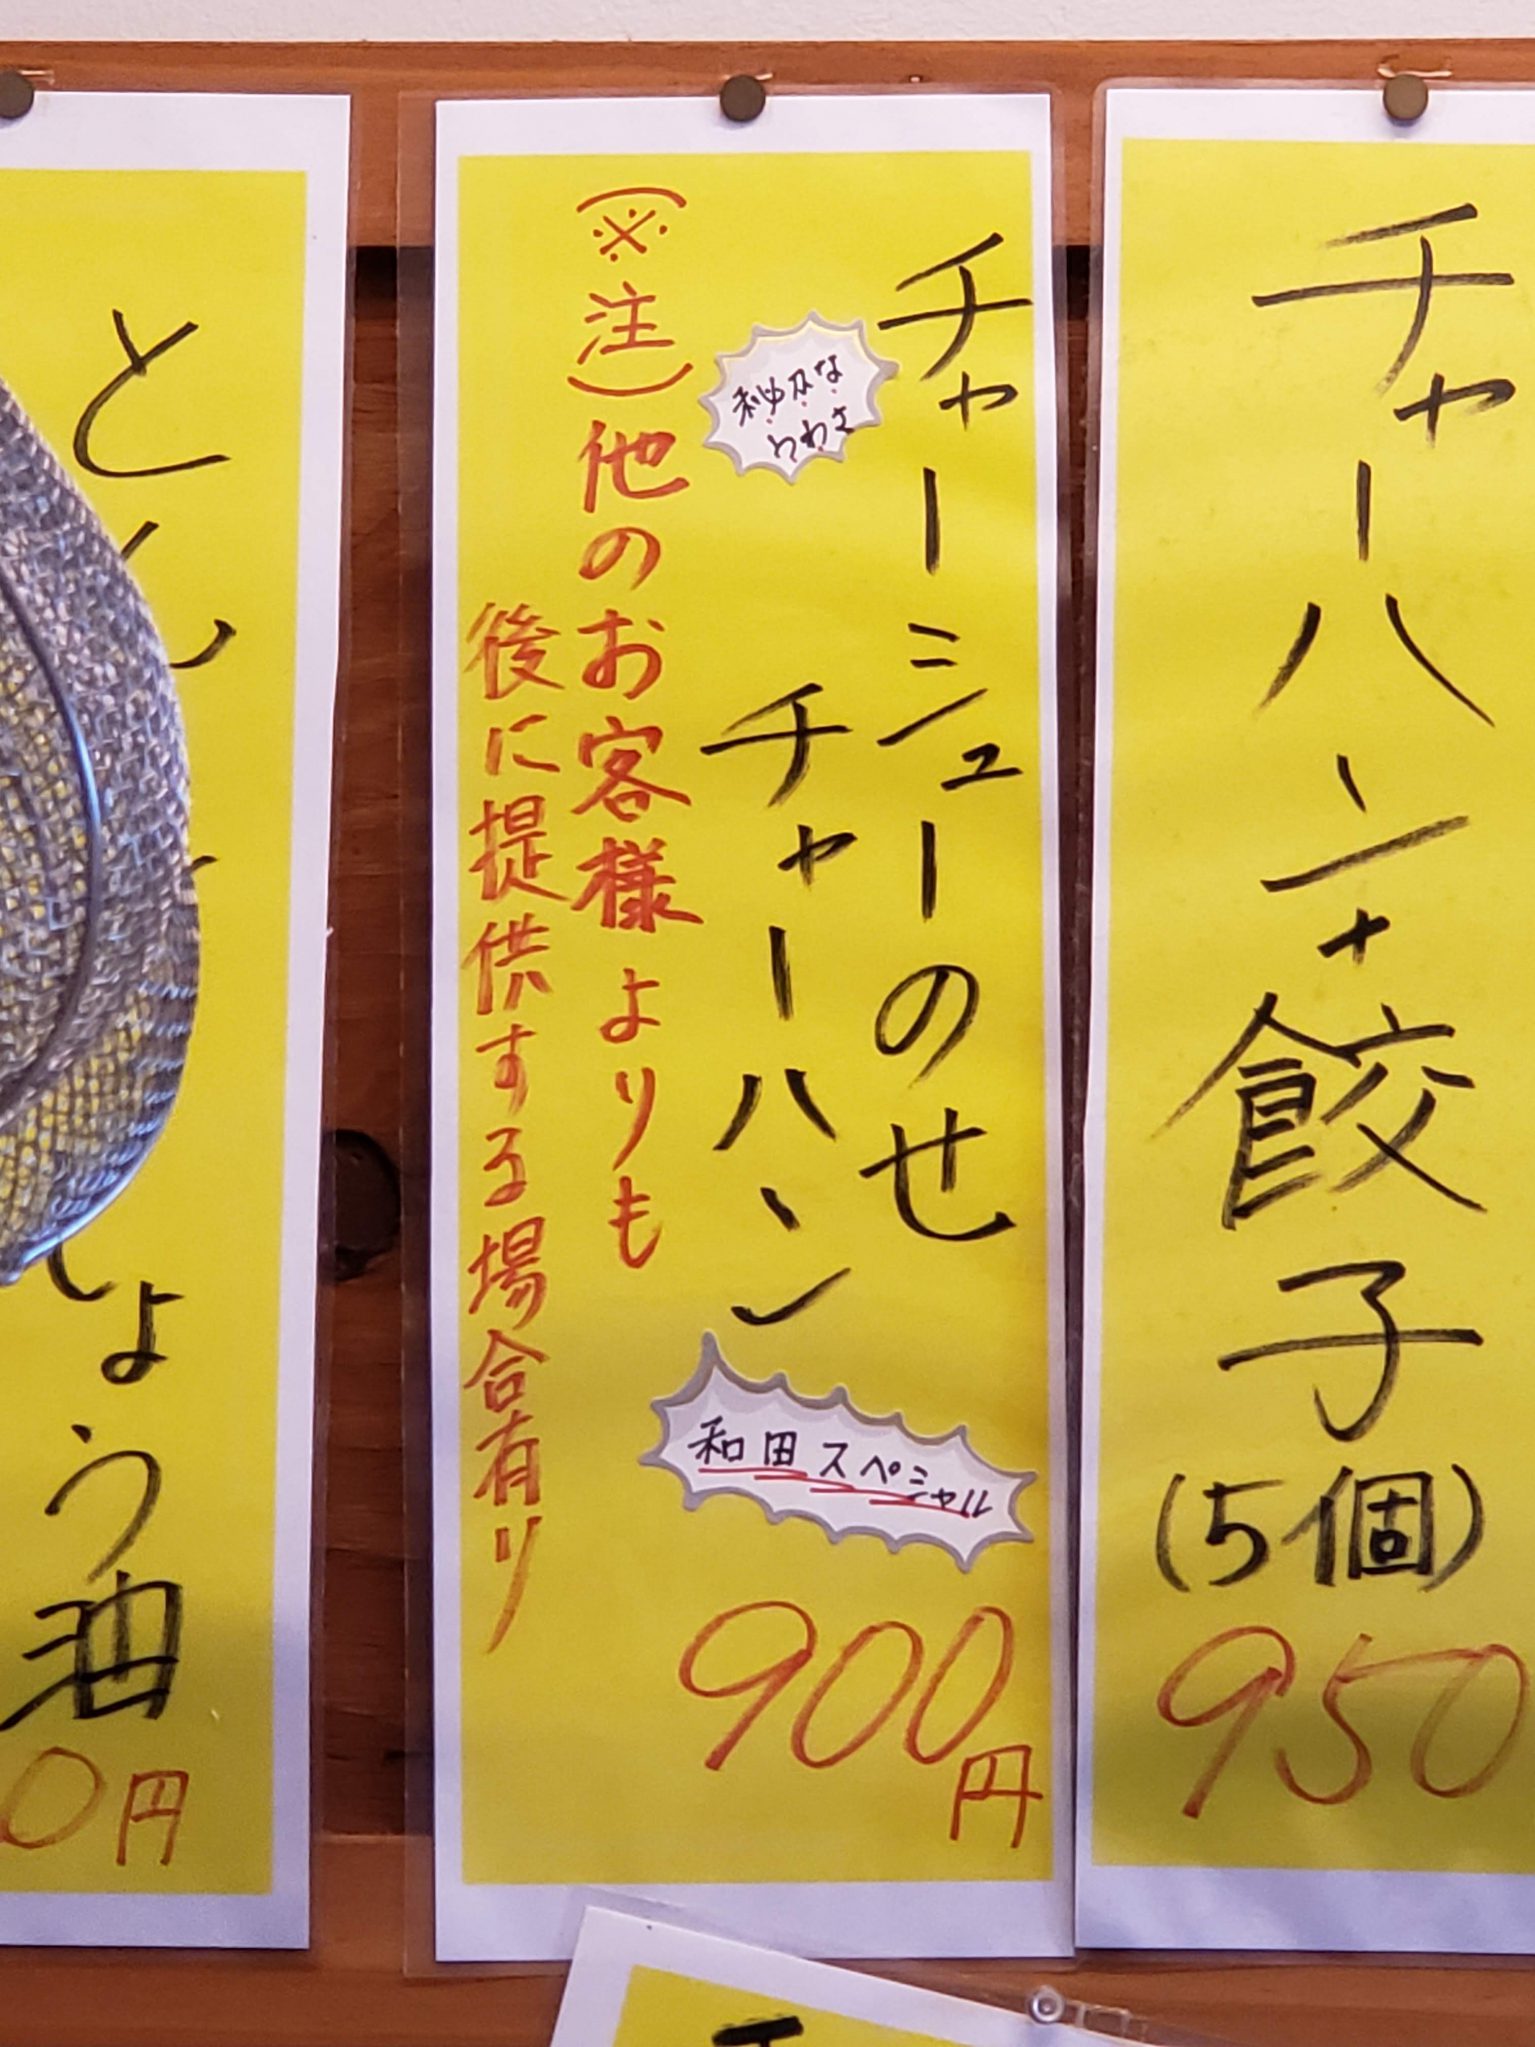 チャーハン+餃子
(5個)
950
チャーシューのせ
チャーハン
和田スペシャル
900円
(※注)他のお客様よりも
後に提供する場合有り
とん
しょう油
0円